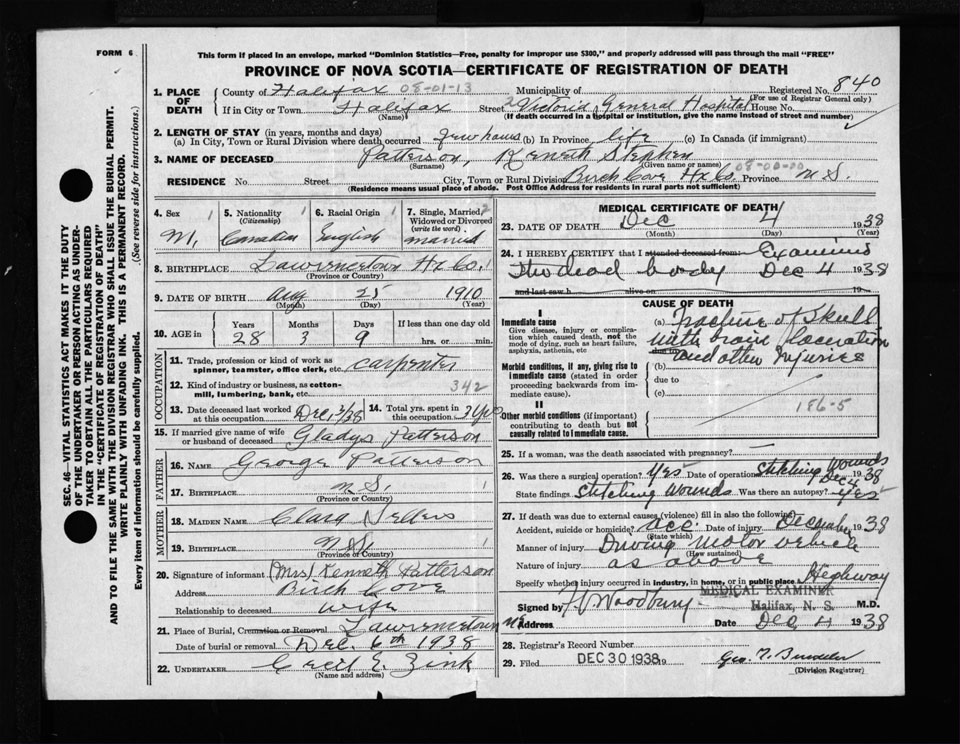 FORM 6
This form if placed in an envelope, marked "Dominion Statistics—Free, penalty for improper use $300," and properly addressed will pass through the mail "FREE"
PROVINCE OF NOVA SCOTIA—CERTIFICATE OF REGISTRATION OF DEATH
1. PLACE OF DEATH
County of Halifax 08-01-13 Municipality of Registered No. 840
(For use of Registrar General only)
If in City or Town Halifax Street Victoria General Hospital House No.
(Name) (If death occurred in a hospital or institution, give the name instead of street and number)
2. LENGTH OF STAY (in years, months and days)
(a) In City, Town or Rural Division where death occurred few hours (b) In Province life (c) In Canada (if immigrant)
3. NAME OF DECEASED Patterson, Kenneth Stephen
(Surname) (Given name or names)
RESIDENCE No. Street City, Town or Rural Division Birch Cove Hx Co. Province N.S.
(Residence means usual place of abode. Post Office Address for residents in rural parts not sufficient)
4. Sex M.
5. Nationality (Citizenship) Canadian
6. Racial Origin English
7. Single, Married, Widowed or Divorced (write the word) married
8. BIRTHPLACE Lawrencetown Hx Co.
(Province or Country)
9. DATE OF BIRTH Aug 25 1910
(Month) (Day) (Year)
10. AGE in Years Months Days If less than one day old
28 3 9 hrs. or min.
OCCUPATION
11. Trade, profession or kind of work as spinner, teamster, office clerk, etc. carpenter
12. Kind of industry or business, as cotton-mill, lumbering, bank, etc. 342
13. Date deceased last worked at this occupation Dec 3/38
14. Total yrs. spent in this occupation
15. If married give name of wife or husband of deceased Gladys Patterson
FATHER
16. NAME George Patterson
17. BIRTHPLACE N.S.
(Province or Country)
MOTHER
18. MAIDEN NAME Clara
19. BIRTHPLACE N.S.
(Province or Country)
20. Signature of informant (Mrs) Kenneth Patterson
Address Birch Cove
Relationship to deceased wife
21. Place of Burial, Cremation or Removal Lawrencetown NS
Date of burial or removal Dec. 6th 1938
22. UNDERTAKER Cecil E. Zink
(Name and address)
MEDICAL CERTIFICATE OF DEATH
23. DATE OF DEATH Dec 4 1938
(Month) (Day) (Year)
24. I HEREBY CERTIFY that I attended deceased from: Examined
the dead body Dec 4 1938
and last saw h alive on 19
CAUSE OF DEATH
I
Immediate cause
Give disease, injury or complication which caused death, not the mode of dying, such as heart failure, asphyxia, asthenia, etc
(a) Fracture of Skull
with brain laceration
due to
and other injuries
Morbid conditions, if any, giving rise to immediate cause (stated in order proceeding backwards from immediate cause).
(b)
due to
(c)
II
Other morbid conditions (if important) contributing to death but not causally related to immediate cause.
186-5
25. If a woman, was the death associated with pregnancy?
26. Was there a surgical operation? Yes Date of operation Stitching wounds Dec 4 1938
State findings Stitching wounds Was there an autopsy? Yes
27. If death was due to external causes (violence) fill in also the following:
Accident, suicide or homicide? acc. Date of injury December 1938
(State which)
Manner of injury Driving motor vehicle
(How sustained)
Nature of injury as above
Specify whether injury occurred in industry, in home, or in public place Highway
MEDICAL EXAMINER
Signed by Woodbury Halifax, N. S. M.D.
Address Date Dec 4 1938
28. Registrar's Record Number
29. Filed DEC 30 1938 19
(Division Registrar)
SEC. 46—VITAL STATISTICS ACT MAKES IT THE DUTY OF THE UNDERTAKER OR PERSON ACTING AS UNDERTAKER TO OBTAIN ALL THE PARTICULARS REQUIRED IN THE "CERTIFICATE OF REGISTRATION OF DEATH" AND TO FILE THE SAME WITH THE DIVISION REGISTRAR WHO SHALL ISSUE THE BURIAL PERMIT.
WRITE PLAINLY WITH UNFADING INK. THIS IS A PERMANENT RECORD.
Every item of information should be carefully supplied. (See reverse side for instructions.)